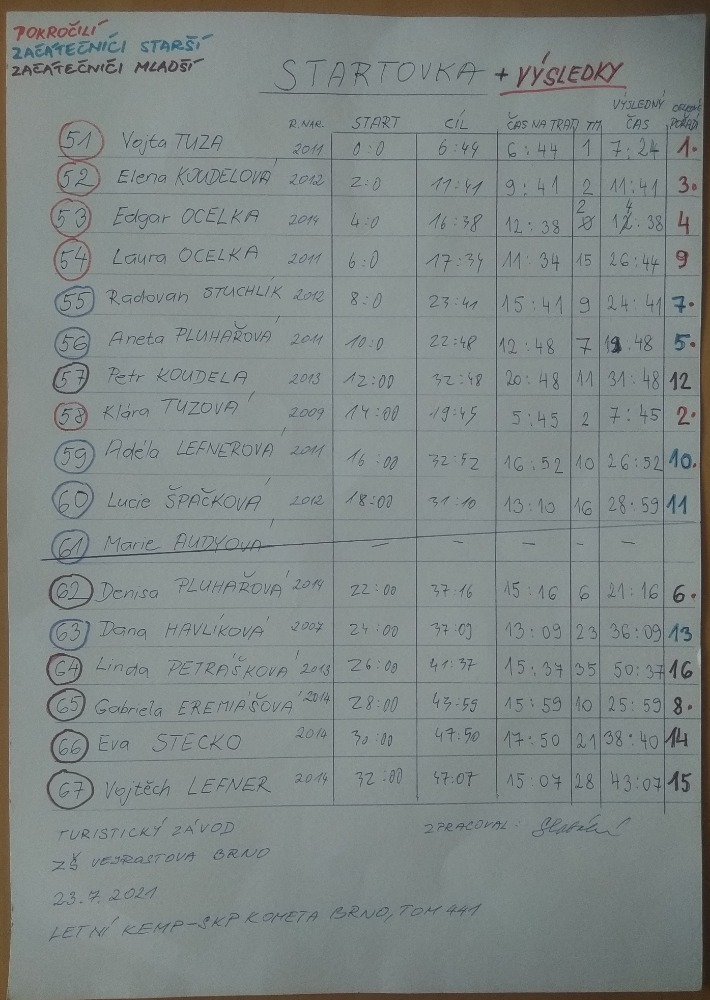 POKROČILÍ
ZAČÁTEČNÍCI STARŠÍ
ZAČÁTEČNÍCI MLADŠÍ
STARTOVKA + VÝSLEDKY
R.NAR. START CÍL ČAS NA TRATI TM VÝSLEDNÝ ČAS POŘADÍ
51 Vojta TUZA 2011 0:0 6:44 6:44 1 7:24 1.
52 Elena KOUDELOVÁ 2012 2:0 11:41 9:41 2 11:41 3.
53 Edgar OCELKA 2014 4:0 16:38 12:38 2 14:38 4
54 Laura OCELKA 2011 6:0 17:34 11:34 15 26:44 9
55 Radovan STUCHLÍK 2012 8:0 23:41 15:41 9 24:41 7.
56 Aneta PLUHAŘOVÁ 2011 10:0 22:48 12:48 7 19:48 5.
57 Petr KOUDELA 2013 12:00 32:48 20:48 11 31:48 12
58 Klára TUZOVÁ 2009 14:00 19:45 5:45 2 7:45 2.
59 Adéla LEFNEROVÁ 2011 16:00 32:52 16:52 10 26:52 10.
60 Lucie ŠPAČKOVÁ 2012 18:00 31:10 13:10 16 28:59 11
61 Marie AUDYOVÁ – – – – –
62 Denisa PLUHAŘOVÁ 2014 22:00 37:16 15:16 6 21:16 6.
63 Dana HAVLÍKOVÁ 2007 24:00 37:09 13:09 23 36:09 13
64 Linda PETRÁŠKOVÁ 2013 26:00 41:37 15:37 35 50:37 16
65 Gabriela EREMIÁŠOVÁ 2014 28:00 43:59 15:59 10 25:59 8.
66 Eva STECKO 2014 30:00 47:50 17:50 21 38:40 14
67 Vojtěch LEFNER 2014 32:00 47:07 15:07 28 43:07 15
TURISTICKÝ ZÁVOD ZPRACOVAL:
ZŠ VEJROSTOVA BRNO
23.7.2021
LETNÍ KEMP-SKP KOMETA BRNO, TOM 441